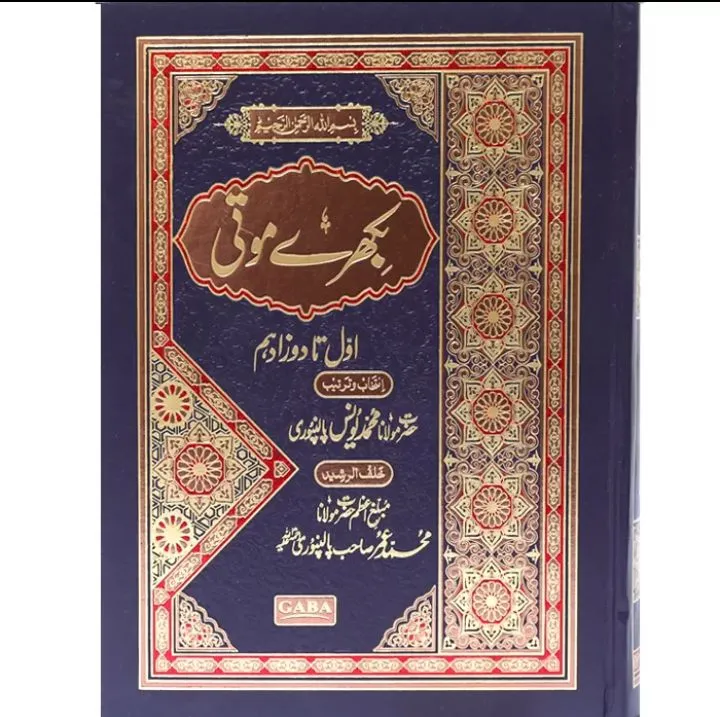 بسم الله الرحمن الرحیم
بکھرے موتی
اوّل تا دوازدہم
انتخاب و ترتیب
حضرت مولانا محمد یونس پالنپوری
خلف الرشید
مبلغ اعظم حضرت مولانا
محمد عمر صاحب پالنپوری رحمۃ اللہ علیہ
GABA